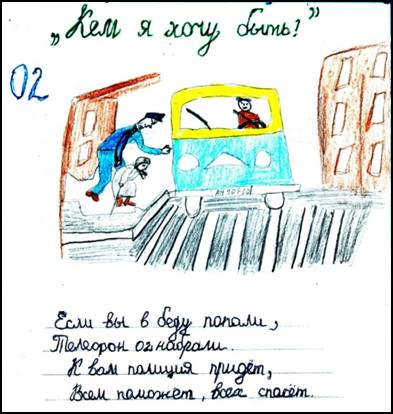 „Кем я хочу быть?"
02
Если вы в беду попали,
Телефон 02 набрали.
К вам полиция придёт,
Всем поможет, всех спасёт.